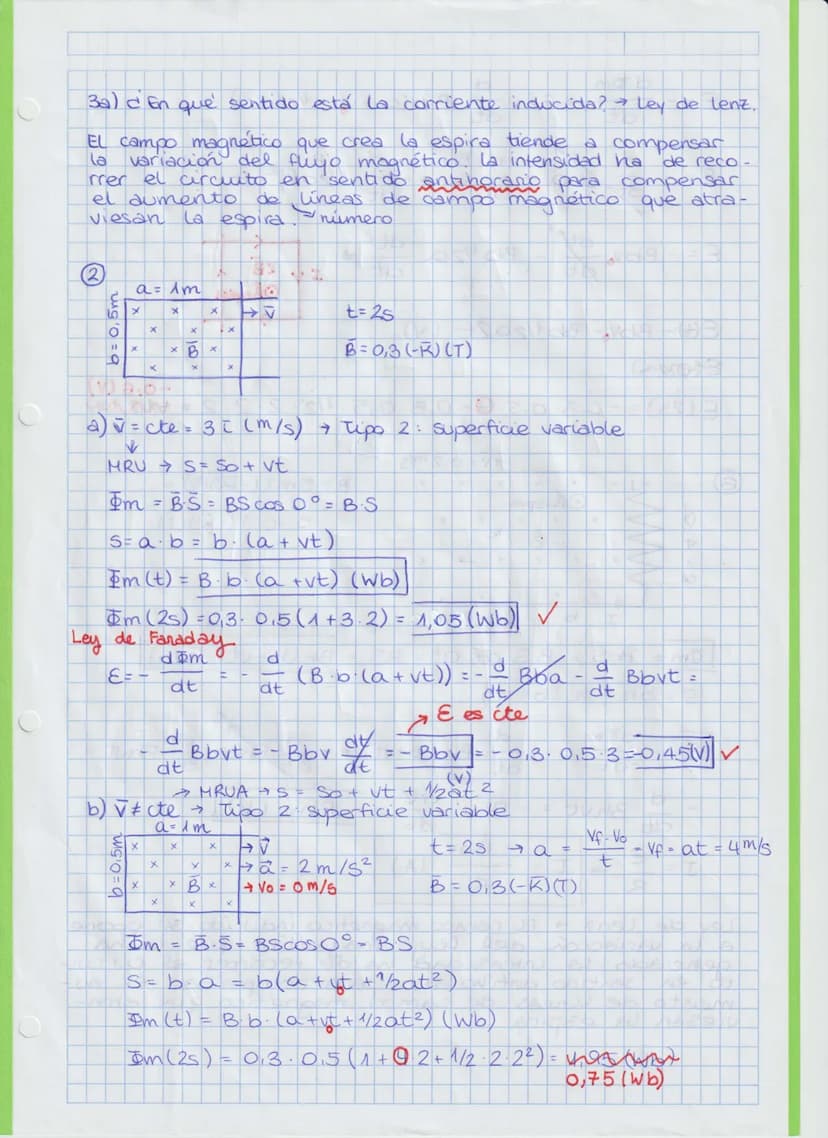 3a) ¿En qué sentido está la corriente inducida? → Ley de Lenz.
El campo magnético que crea la espira tiende a compensar
la variación del flujo magnético. La intensidad ha de reco-
rrer el circuito en sentido antihorario para compensar
el aumento de líneas de campo magnético que atra-
viesan la espira. → número
②
a = 1m
b = 0,5m
→ v̄
B̄
t = 2s
B̄ = 0,3 (-k̄) (T)
a) v̄ = cte = 3 ī (m/s) → Tipo 2: superficie variable
↓
MRU → s = so + vt
Φm = B̄·S̄ = BS cos 0° = B·S
S = a · b = b · (a + vt)
Φm (t) = B · b · (a + vt) (Wb)
Φm (2s) = 0,3 · 0,5 (1 + 3 · 2) = 1,05 (Wb) ✓
Ley de Faraday
Ɛ = - dΦm/dt = - d/dt (B·b·(a + vt)) = - d/dt Bba - d/dt Bbvt =
→ Ɛ es cte
- d/dt Bbvt = - Bbv dt/dt = - Bbv (V) = - 0,3 · 0,5 · 3 = -0,45 (V) ✓
→ MRUA → s = so + vt + 1/2 at²
b) v̄ ≠ cte → Tipo 2: superficie variable
a = 1m
b = 0,5m
→ v̄
→ ā = 2 m/s²
→ vo = 0 m/s
B̄
t = 2s → a = Vf - Vo/t = Vf = at = 4 m/s
B̄ = 0,3 (-k̄) (T)
Φm = B̄·S̄ = BS cos 0° = BS
S = b · a = b (a + vt + 1/2 at²)
Φm (t) = B · b · (a + vt + 1/2 at²) (Wb)
Φm (2s) = 0,3 · 0,5 (1 + 0 · 2 + 1/2 · 2 · 2²) =
0,75 (Wb)